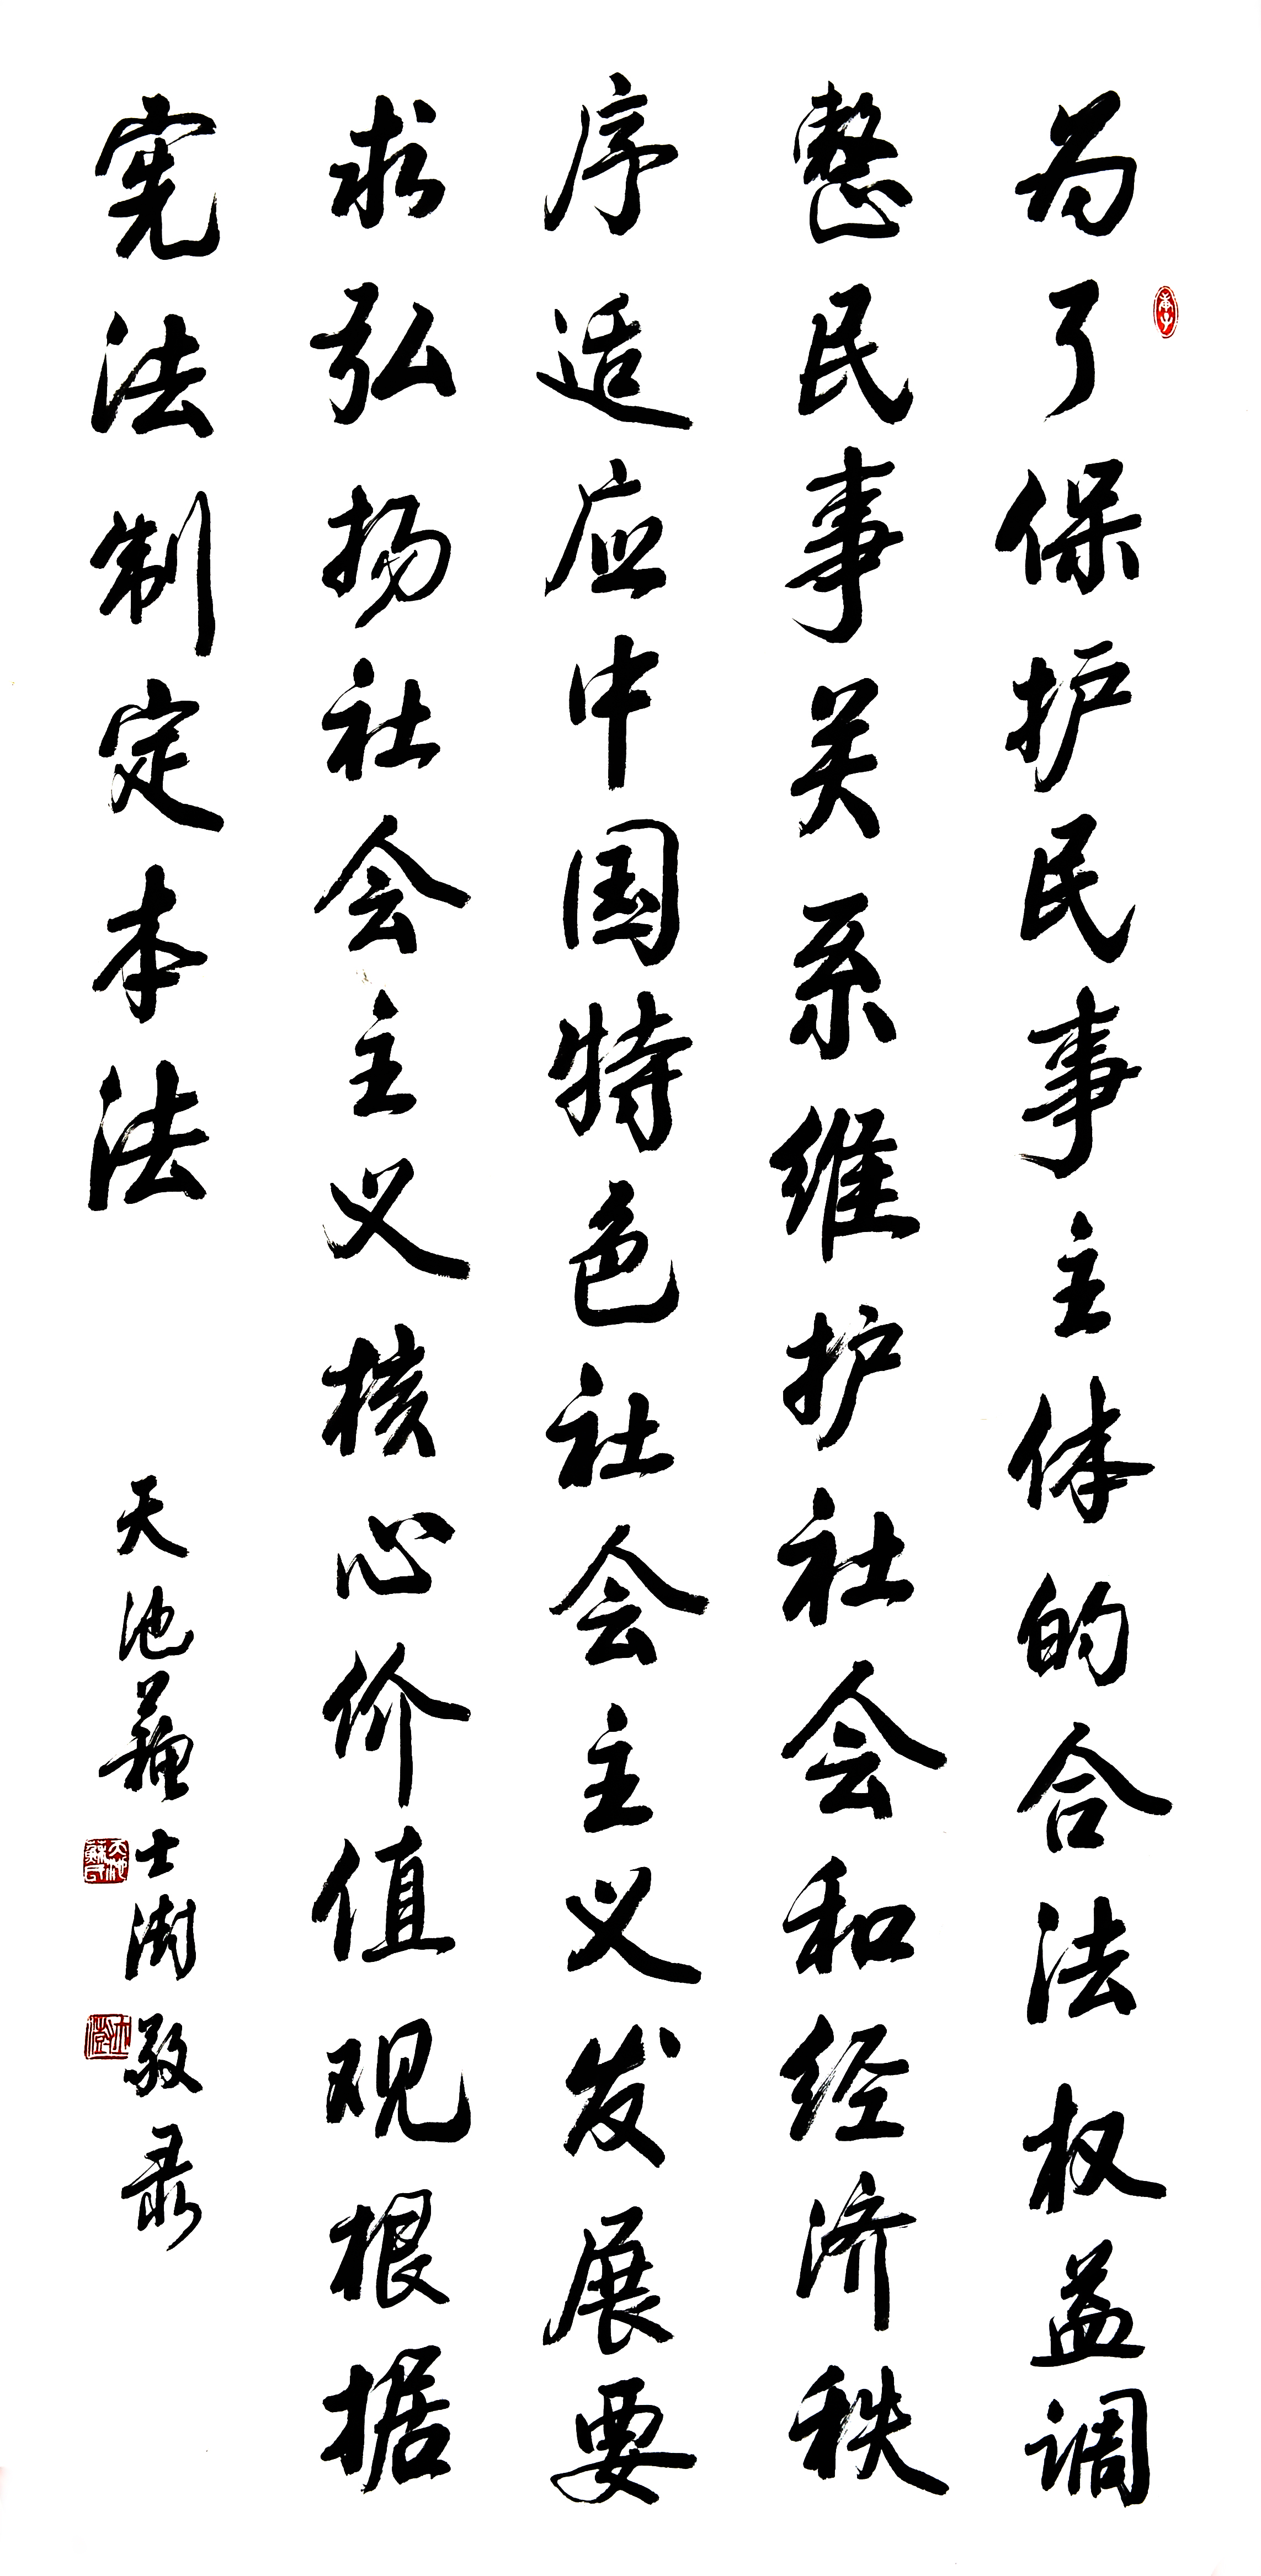 为了保护民事主体的合法权益调
整民事关系维护社会和经济秩
序适应中国特色社会主义发展要
求弘扬社会主义核心价值观根据
宪法制定本法
天池苏士澍敬录
庚子
天池苏氏
士澍